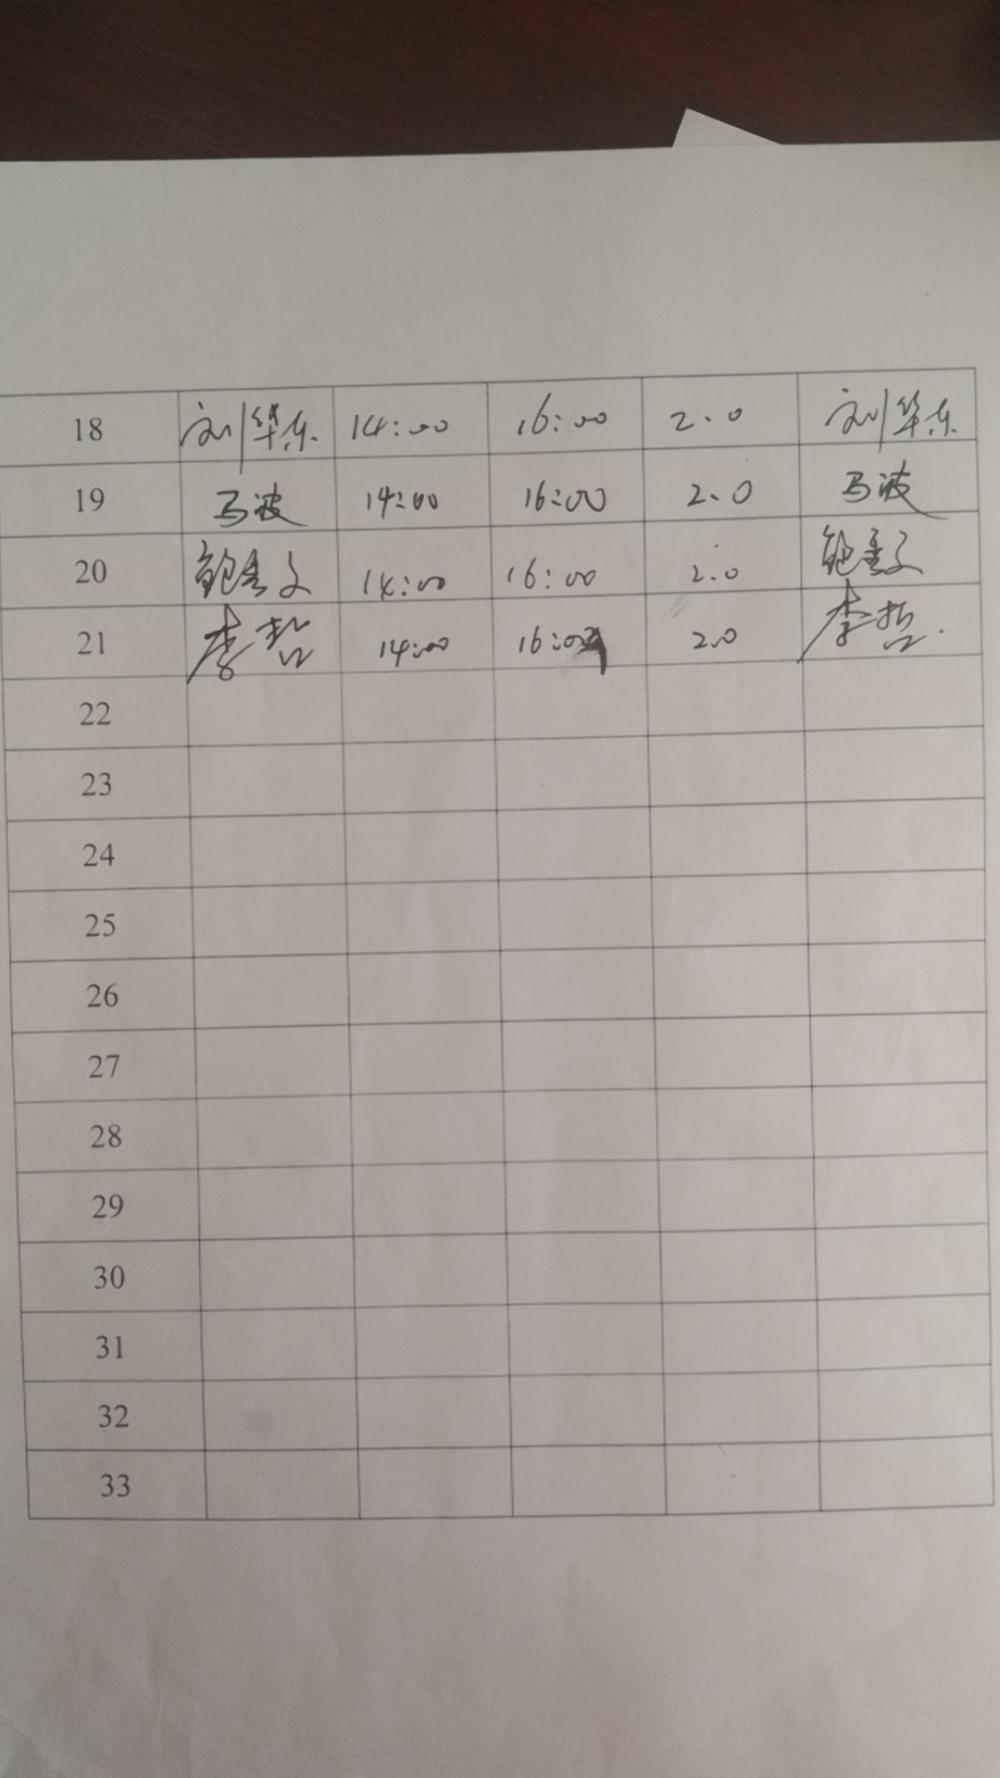 18 刘华东 14:00 16:00 2.0 刘华东
19 马波 14:00 16:00 2.0 马波
20 鲍 文 14:00 16:00 2.0 鲍 文
21 李哲 14:00 16:00 2.0 李哲.
22
23
24
25
26
27
28
29
30
31
32
33